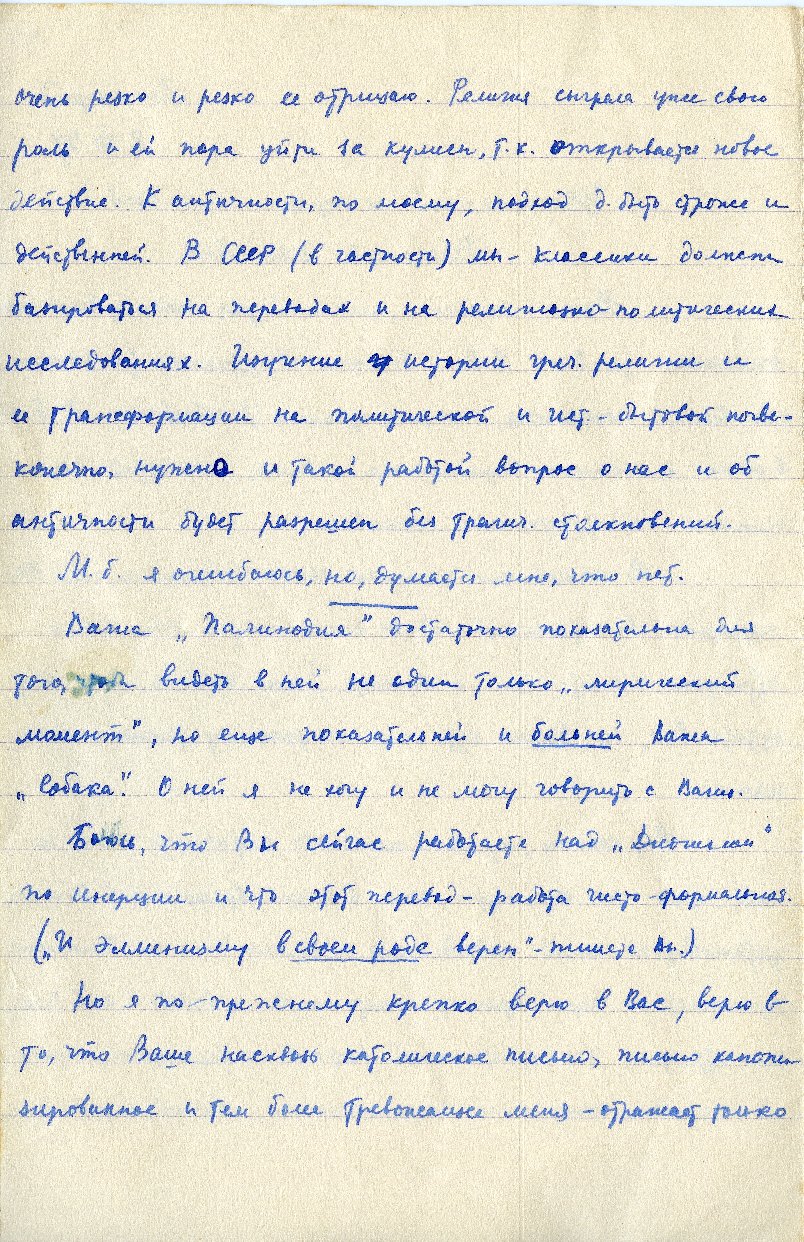 очень резко и резко ее отрицаю. Религия сыграла уже свою
роль и ей пора уйти за кулисы, т.к. открывается новое
действие. К античности, по моему, подход д. быть строже и
действенней. В СССР (в частности) мы - классики должны
базироваться на переводах и на религиозно политических
исследованиях. Изучение истории греч. религии и
ее трансформации на политической и ист.-бытовой почве-
конечно, нужно и такой работой вопрос о нас и об
античности будет разрешен без трагич. столкновений.
М. б. я ошибаюсь, но, думается мне, что нет.
Ваша „Палинодия" достаточно показательна для
того, чтобы видеть в ней не один только „лирический
момент", но еще показательней и больней Ваша
„Собака". О ней я не хочу и не могу говорить с Вами.
Боюсь, что Вы сейчас работаете над „Дионисом"
по инерции и что этот перевод - работа чисто-формальная.
(„И эллинизму в своем роде верен" - пишете Вы.)
Но я по-прежнему крепко верю в Вас, верю в
то, что Ваше насквозь католическое письмо, письмо канони-
зированное и тем более тревожащее меня - отражает только